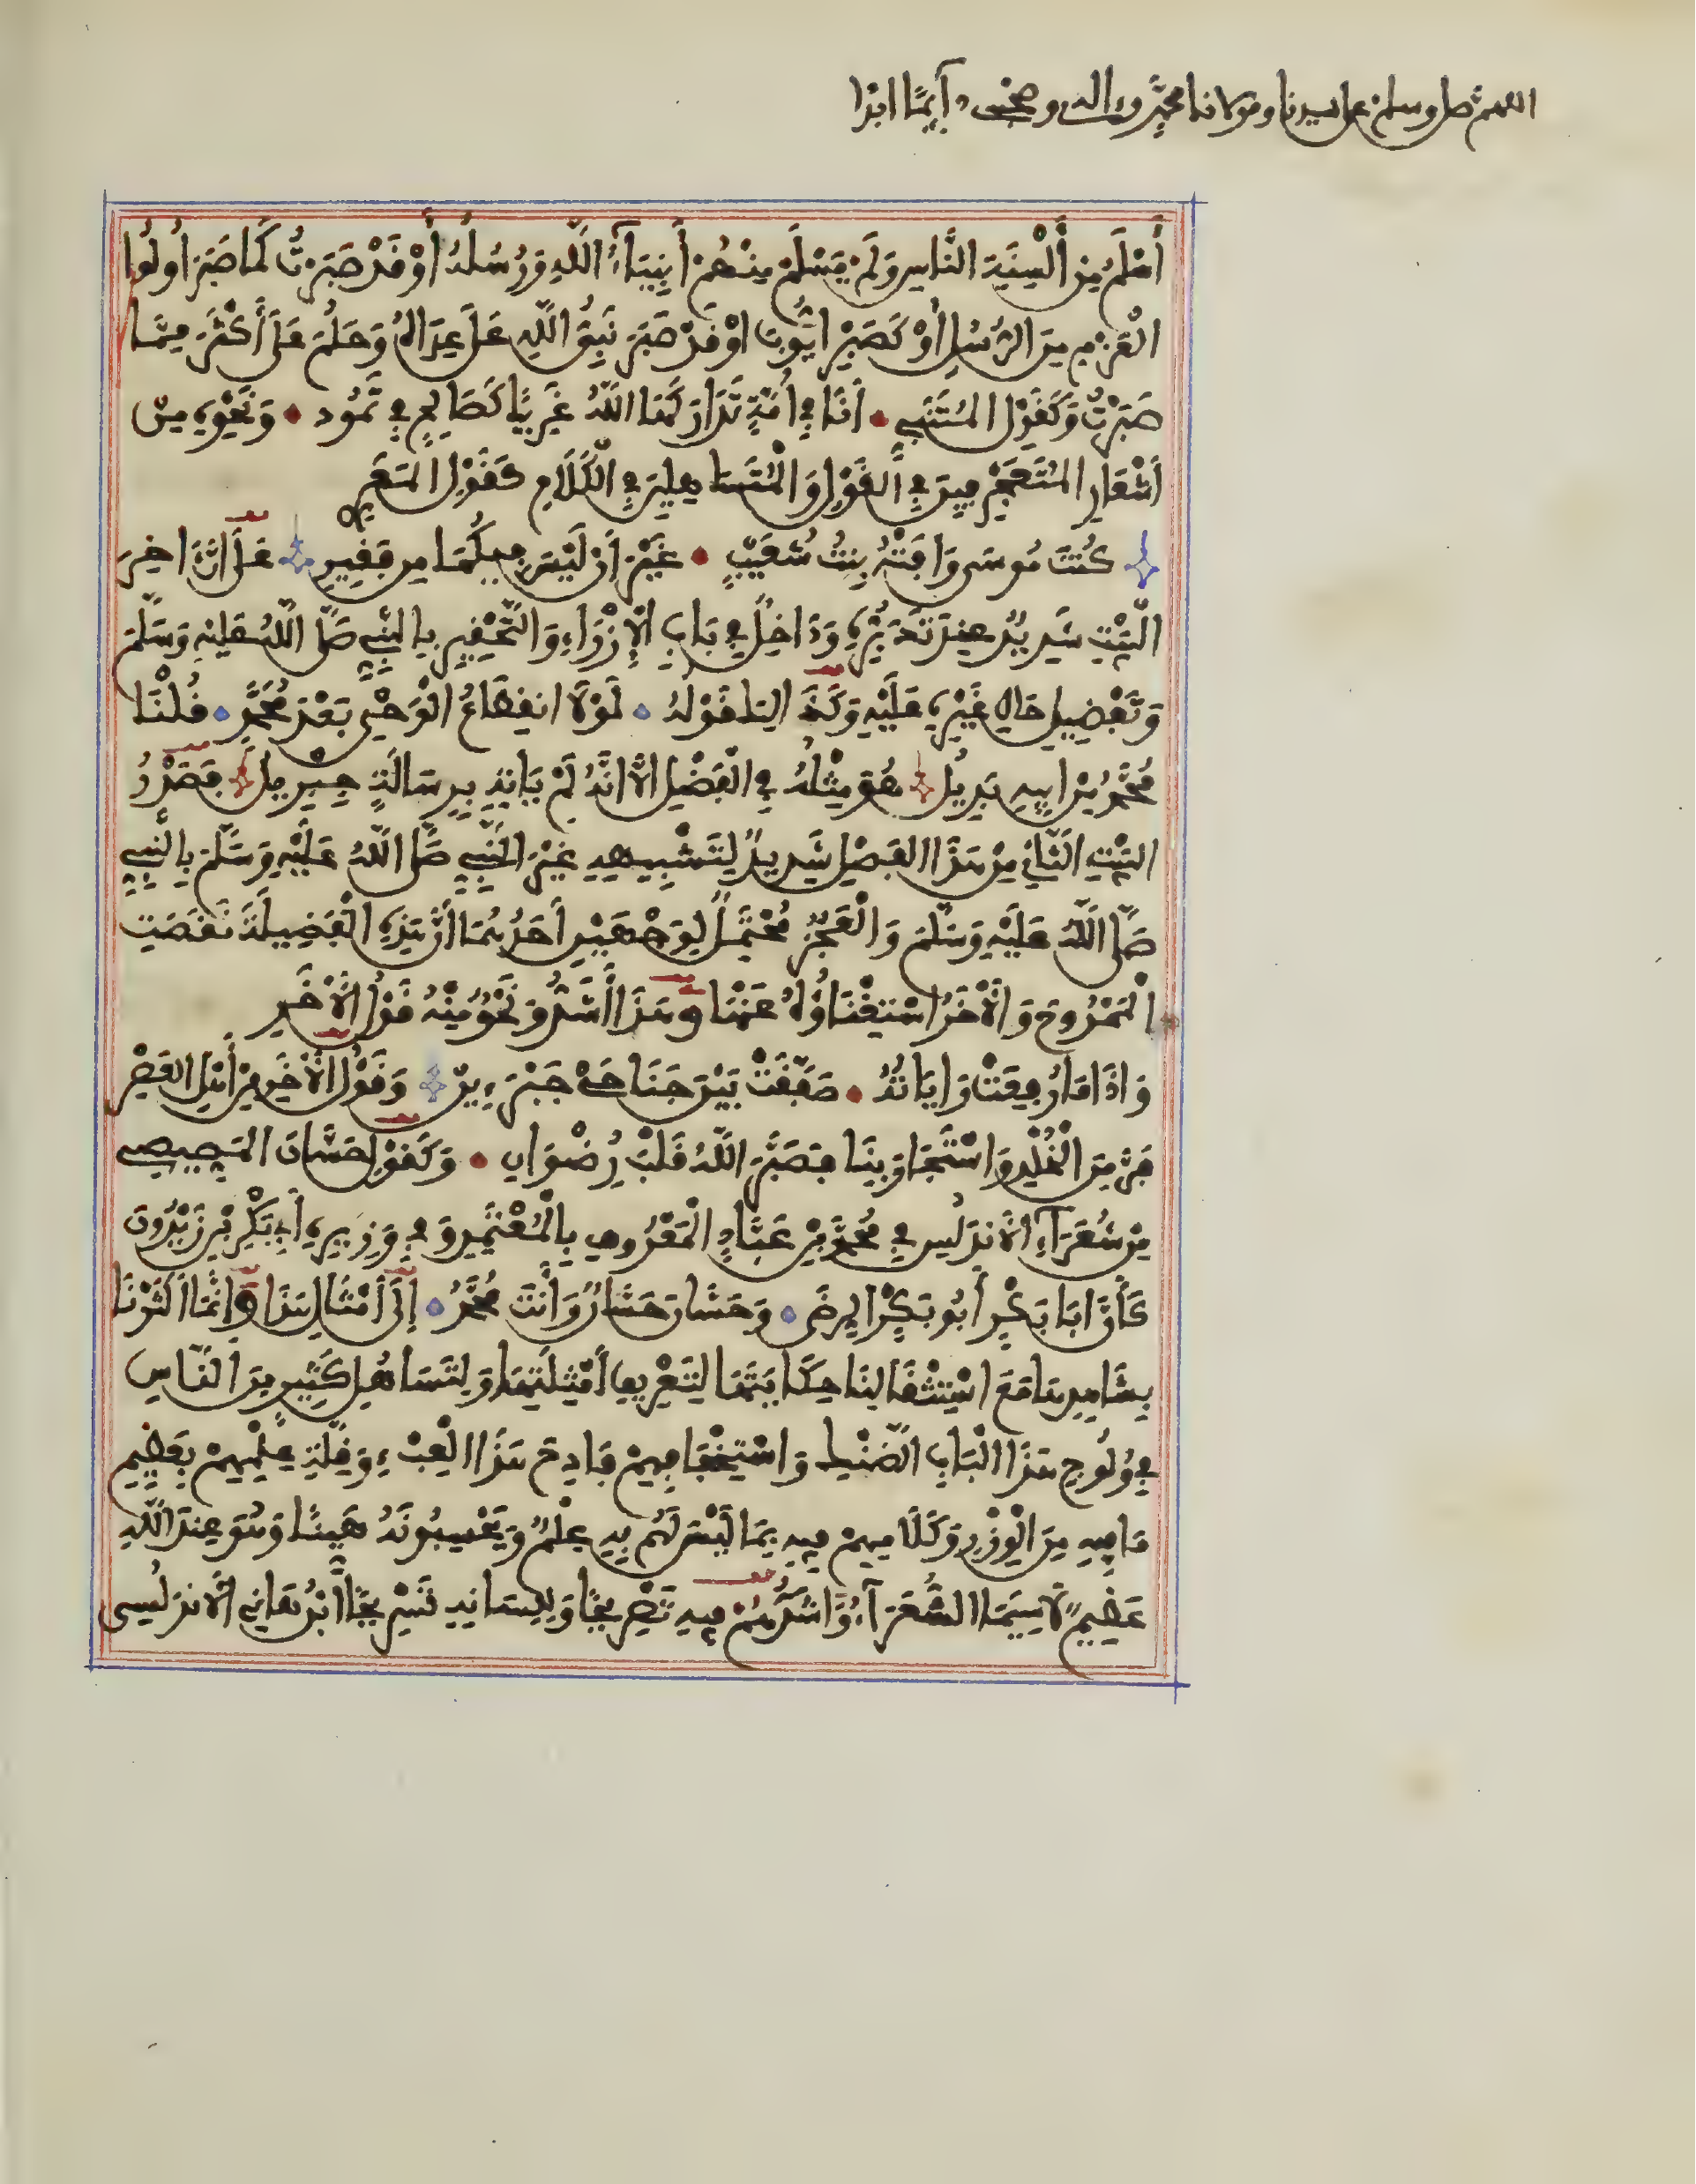 اللهم صل وسلم على سيدنا ومولانا محمد وءاله وصحبه دآيما ابدا
أَسْلَمُ مِنْ أَلْسِنَةِ النَّاسِ وَلَمْ يَسْلَمْ مِنْهُمْ أَنْبِيَآءُ اللَّهِ وَرُسُلُهُ أَوْ قَدْ صَبَرْتُ كَمَا صَبَرَ اُولُوا
الْعَزْمِ مِنَ الرُّسُلِ أَوْ كَصَبْرِ ايُّوبَ اوْ قَدْ صَبَرَ نَبِيُّ اللَّهِ عَلَى عِدَاهُ وَحَلُمَ عَلَى أَكْثَرَ مِمَّا
صَبَرْتُ وَكَقَوْلِ الْمُتَنَبِي • أنَا فِي أُمَّةٍ تَدَارَكَهَا اللَّهُ غَرِيبٌ كَصَالِحٍ فِي ثَمُودِ • وَنَحْوِهِ مِنْ
أَشْعَارِ الْمُتَعَجْرِفِينَ فِي الْقَوْلِ وَالْمُتَسَاهِلِينَ فِي الْكَلَامِ كَقَوْلِ الْمَعَرِّي
كُنْتَ مُوسَى وَافَتْهُ بِنْتُ شُعَيْبٍ • غَيْرَ أَنْ لَيْسَ فِيكُمَا مِن فَقِيرِ عَلَى أَنَّ اخِرَ
الْبَيْتِ شَدِيدٌ عِنْدَ تَدَبُّرِهِ وَدَاخِلٌ فِي بَابِ الْإِزْرَاءِ وَالتَّحْقِيرِ بِالنَّبِيِّ صَلَّى اللَّهُ عَلَيْهِ وَسَلَّمَ
وَتَفْضِيلِ حَالِ غَيْرِهِ عَلَيْهِ وَكَذَالِكَ قَوْلُهُ • لَوْلَا انقِطَاعُ الْوَحْيِ بَعْدَ مُحَمَّدٍ • قُلْنَا
مُحَمَّدٌ مِنْ ابِيهِ بَدِيلُ هُوَ مِثْلُهُ فِي الْفَضْلِ الَّا انَّهُ لَمْ يَاتِهِ بِرِسَالَةٍ جِبْرِيلُ فَصَدْرُ
الْبَيْتِ الثَّانِي مِنْ هَذَا الفَصْلِ شَدِيدٌ لِتَشْبِيهِهِ غَيْرَ النَّبِيِّ صَلَّى اللَّهُ عَلَيْهِ وَسَلَّمَ بِالنَّبِيِّ
صَلَّى اللَّهُ عَلَيْهِ وَسَلَّمَ وَالْعَجُزُ مُحْتَمِلٌ لِوَجْهَيْنِ أَحَدُهُمَا أَنَّ هَذِهِ الْفَضِيلَةَ نَقَصَتِ
الْمَمْدُوحَ وَالْأَخَرُ اسْتِغْنَاؤُهُ عَنْهَا وَهَذَا أَشَدُّ وَنَحْوٌ مِنْهُ قَوْلُ الْأَخَرِ
وَاذَا مَا رُفِعَتْ رَايَاتُهُ • صَفَّقَتْ بَيْنَ جَنَاحَيْ جَبْرَءِينْ وَقَوْلُ الْأَخَرِ مِنْ أَهْلِ الْعَصْرِ
فَرَّ مِنَ الْخُلْدِ وَاسْتَجَارَ بِنَا فَصَبَّرَ اللَّهُ قَلْبَ رِضْوَانِ • وَكَقَوْلِ حَسَّانَ الْمَصِيصِي
مِنْ شُعَرَآءِ الْأَنْدَلُسِ فِي مُحَمَّدِ بْنِ عَبَّادٍ الْمَعْرُوفِ بِالْمُعْتَمِدِ وَفِي وَزِيرِهِ أَبِي بَكْرِ بْنِ زَيْدُونَ
كَأَنَّ ابَا بَكْرٍ أَبُو بَكْرٍ الرِضَى • وَحَسَّانَ حَسَّانٌ وَأَنْتَ مُحَمَّدُ • إِلَى أَمْثَالِ هَذَا وَانَّمَا أَكْثَرْنَا
بِشَاهِدِهَا مَعَ اسْتِثْقَالِنَا حِكَايَتَهَا لِتَعْرِيفِ أَمْثِلَتِهَا وَلِتَسَاهُلِ كَثِيرٍ مِنَ النَّاسِ
فِي وُلُوجِ هَذَا الْبَابِ الضَّنْكِ وَاسْتِخْفَافِهِمْ فَادِحَ هَذَا الْعِبْءِ وَقِلَّةِ عِلْمِهِمْ بِعَظِيمِ
مَا فِيهِ مِنَ الْوِزْرِ وَكَلَامِهِمْ فِيهِ بِمَا لَيْسَ لَهُم بِهِ عِلْمٌ وَيَحْسِبُونَهُ هَيِّنًا وَهُوَ عِندَ اللَّهِ
عَظِيمٌ لَاسِيَمَا الشُّعَرَآءُ وَأَشَدُّهُمْ فِيهِ تَصْرِيحًا وَلِلِسَانِهِ تَسْرِيحًا ابْنُ هَانِي الْأَنْدَلُسِي